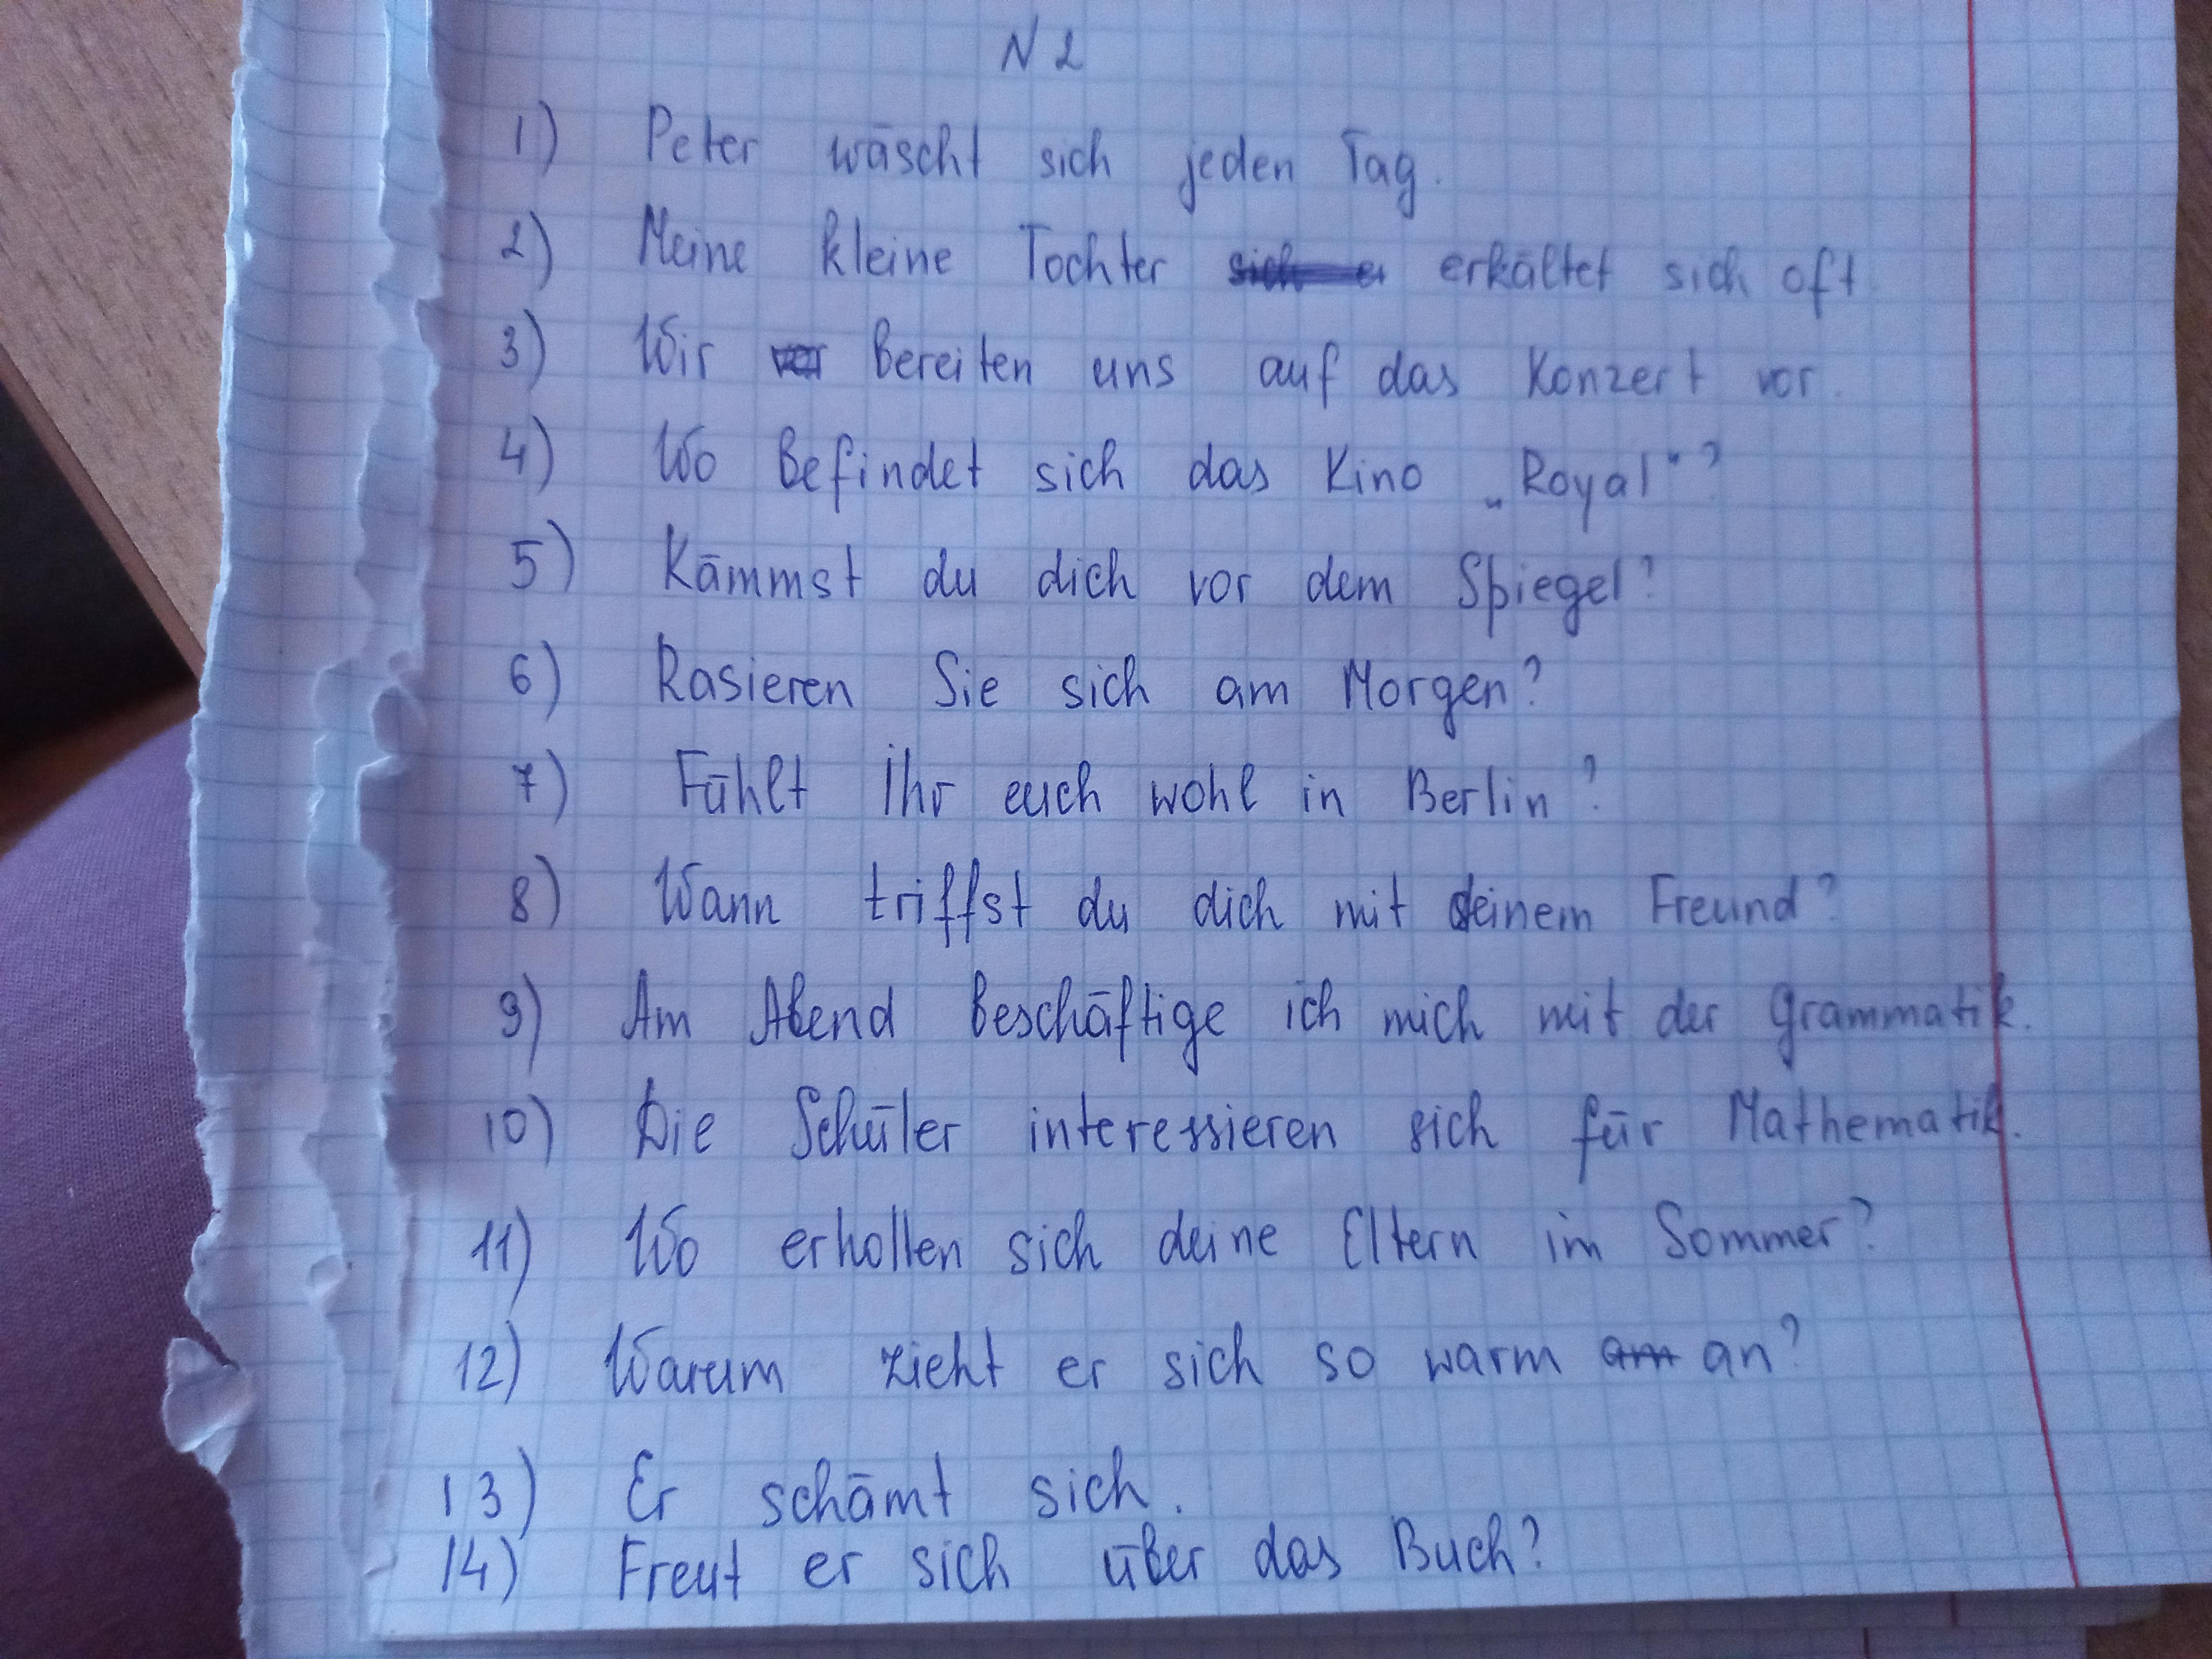 N 2
1) Peter wäscht sich jeden Tag.
2) Meine kleine Tochter erkältet sich oft.
3) Wir bereiten uns auf das Konzert vor.
4) Wo befindet sich das Kino „Royal"?
5) Kämmst du dich vor dem Spiegel?
6) Rasieren Sie sich am Morgen?
7) Fühlt ihr euch wohl in Berlin?
8) Wann triffst du dich mit deinem Freund?
9) Am Abend beschäftige ich mich mit der Grammatik.
10) Die Schüler interessieren sich für Mathematik.
11) Wo erhollen sich deine Eltern im Sommer?
12) Warum zieht er sich so warm am an?
13) Er schämt sich.
14) Freut er sich über das Buch?